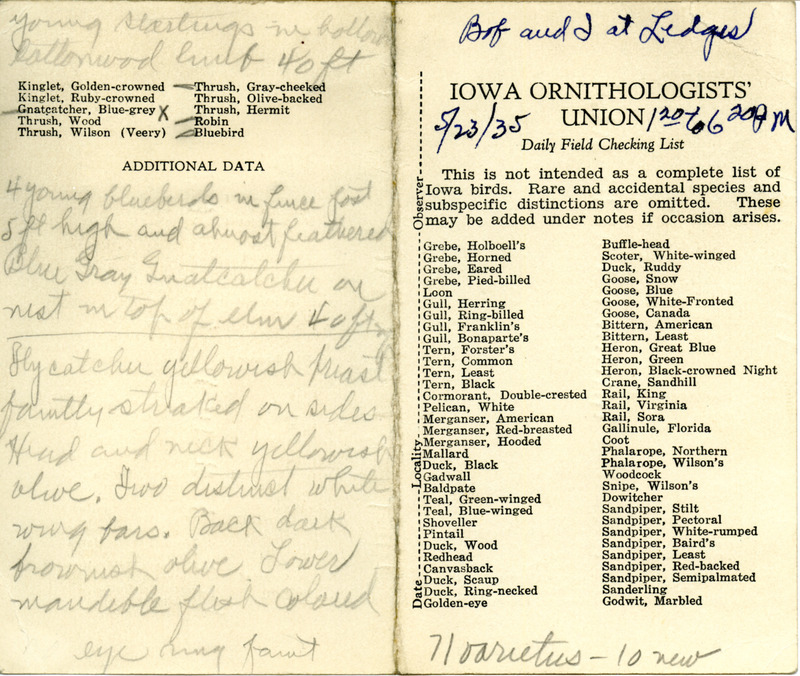 young starlings in hollow
Cottonwood limb 40 ft
Kinglet, Golden-crowned
Kinglet, Ruby-crowned
Gnatcatcher, Blue-grey X
Thrush, Wood
Thrush, Wilson (Veery)
Thrush, Gray-cheeked
Thrush, Olive-backed
Thrush, Hermit
Robin
Bluebird
ADDITIONAL DATA
4 young bluebirds in fence post
5 ft high and almost feathered
Blue Gray Gnatcatcher on
nest in top of elm 40 ft
Flycatcher yellowish breast
faintly streaked on sides
Head and neck yellowish
olive. Two distinct white
wing bars. Back dark
brownish olive Lower
mandible flesh colored
eye ring faint
Bob and I at Ledges
IOWA ORNITHOLOGISTS'
UNION
5/23/35
1 20 to 6 20 P M
Daily Field Checking List
This is not intended as a complete list of
Iowa birds. Rare and accidental species and
subspecific distinctions are omitted. These
may be added under notes if occasion arises.
Date Locality Observer
Grebe, Holboell's
Grebe, Horned
Grebe, Eared
Grebe, Pied-billed
Loon
Gull, Herring
Gull, Ring-billed
Gull, Franklin's
Gull, Bonaparte's
Tern, Forster's
Tern, Common
Tern, Least
Tern, Black
Cormorant, Double-crested
Pelican, White
Merganser, American
Merganser, Red-breasted
Merganser, Hooded
Mallard
Duck, Black
Gadwall
Baldpate
Teal, Green-winged
Teal, Blue-winged
Shoveller
Pintail
Duck, Wood
Redhead
Canvasback
Duck, Scaup
Duck, Ring-necked
Golden-eye
Buffle-head
Scoter, White-winged
Duck, Ruddy
Goose, Snow
Goose, Blue
Goose, White-Fronted
Goose, Canada
Bittern, American
Bittern, Least
Heron, Great Blue
Heron, Green
Heron, Black-crowned Night
Crane, Sandhill
Rail, King
Rail, Virginia
Rail, Sora
Gallinule, Florida
Coot
Phalarope, Northern
Phalarope, Wilson's
Woodcock
Snipe, Wilson's
Dowitcher
Sandpiper, Stilt
Sandpiper, Pectoral
Sandpiper, White-rumped
Sandpiper, Baird's
Sandpiper, Least
Sandpiper, Red-backed
Sandpiper, Semipalmated
Sanderling
Godwit, Marbled
71 varieties - 10 new